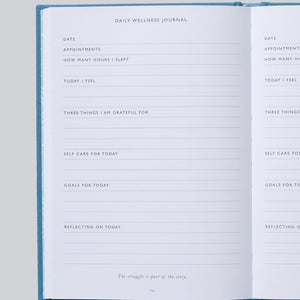 DAILY WELLNESS JOURNAL
DATE
APPOINTMENTS
HOW MANY HOURS I SLEPT
TODAY I FEEL
THREE THINGS I AM GRATEFUL FOR
SELF CARE FOR TODAY
GOALS FOR TODAY
REFLECTING ON TODAY
The struggle is part of the story.
DATE
APPOINTMENTS
HOW MANY
TODAY I FEEL
THREE THIN
SELF CARE
GOALS FOR
REFLECTING